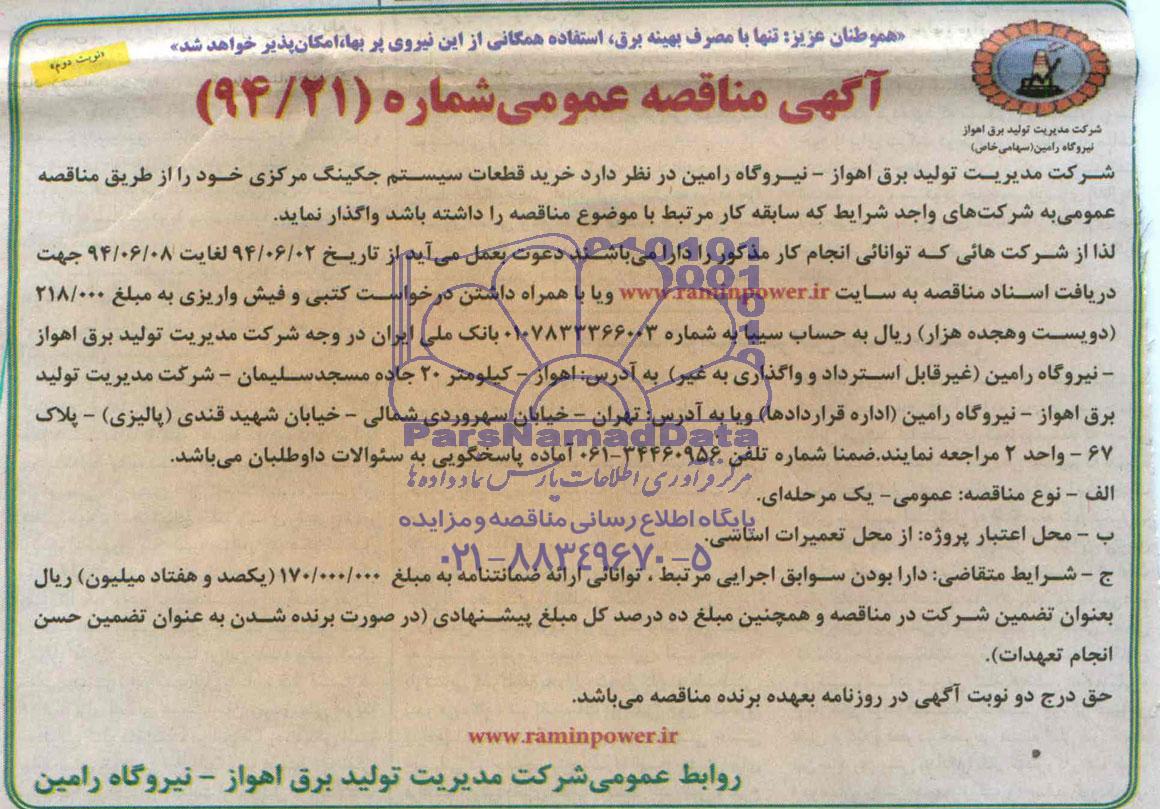 «هموطنان عزیز: تنها با مصرف بهینه برق، استفاده همگانی از این نیروی پر بها،امکان‌پذیر خواهد شد»
«نوبت دوم»
آگهی مناقصه عمومی‌شماره (۹۴/۲۱)
شرکت مدیریت تولید برق اهواز
نیروگاه رامین(سهامی‌خاص)
شرکت مدیریت تولید برق اهواز - نیروگاه رامین در نظر دارد خرید قطعات سیستم جکینگ مرکزی خود را از طریق مناقصه
عمومی‌به شرکت‌های واجد شرایط که سابقه کار مرتبط با موضوع مناقصه را داشته باشد واگذار نماید.
لذا از شرکت هائی که توانائی انجام کار مذکور را دارا می‌باشند دعوت بعمل می‌آید از تاریخ ۹۴/۰۶/۰۲ لغایت ۹۴/۰۶/۰۸ جهت
دریافت اسناد مناقصه به سایت www.raminpower.ir ویا با همراه داشتن درخواست کتبی و فیش واریزی به مبلغ ۲۱۸/۰۰۰
(دویست وهجده هزار) ریال به حساب سیبا به شماره ۰۱۰۷۸۳۳۳۶۶۰۰۳ بانک ملی ایران در وجه شرکت مدیریت تولید برق اهواز
- نیروگاه رامین (غیرقابل استرداد و واگذاری به غیر) به آدرس: اهواز - کیلومتر ۲۰ جاده مسجدسلیمان - شرکت مدیریت تولید
برق اهواز - نیروگاه رامین (اداره قراردادها) ویا به آدرس: تهران - خیابان سهروردی شمالی - خیابان شهید قندی (پالیزی) - پلاک
۶۷ - واحد ۲ مراجعه نمایند.ضمنا شماره تلفن ۳۴۴۶۰۹۵۶-۰۶۱ آماده پاسخگویی به سئوالات داوطلبان می‌باشد.
الف - نوع مناقصه: عمومی- یک مرحله‌ای.
ب - محل اعتبار پروژه: از محل تعمیرات اساسی.
ج - شرایط متقاضی: دارا بودن سوابق اجرایی مرتبط ، توانائی ارائه ضمانتنامه به مبلغ ۱۷۰/۰۰۰/۰۰۰ (یکصد و هفتاد میلیون) ریال
بعنوان تضمین شرکت در مناقصه و همچنین مبلغ ده درصد کل مبلغ پیشنهادی (در صورت برنده شدن به عنوان تضمین حسن
انجام تعهدات).
حق درج دو نوبت آگهی در روزنامه بعهده برنده مناقصه می‌باشد.
www.raminpower.ir
روابط عمومی‌شرکت مدیریت تولید برق اهواز - نیروگاه رامین
ParsNamadData
مرکز فرآوری اطلاعات پارس نماد داده‌ها
پایگاه اطلاع رسانی مناقصه و مزایده
۰۲۱-۸۸۳۴۹۶۷۰-۵